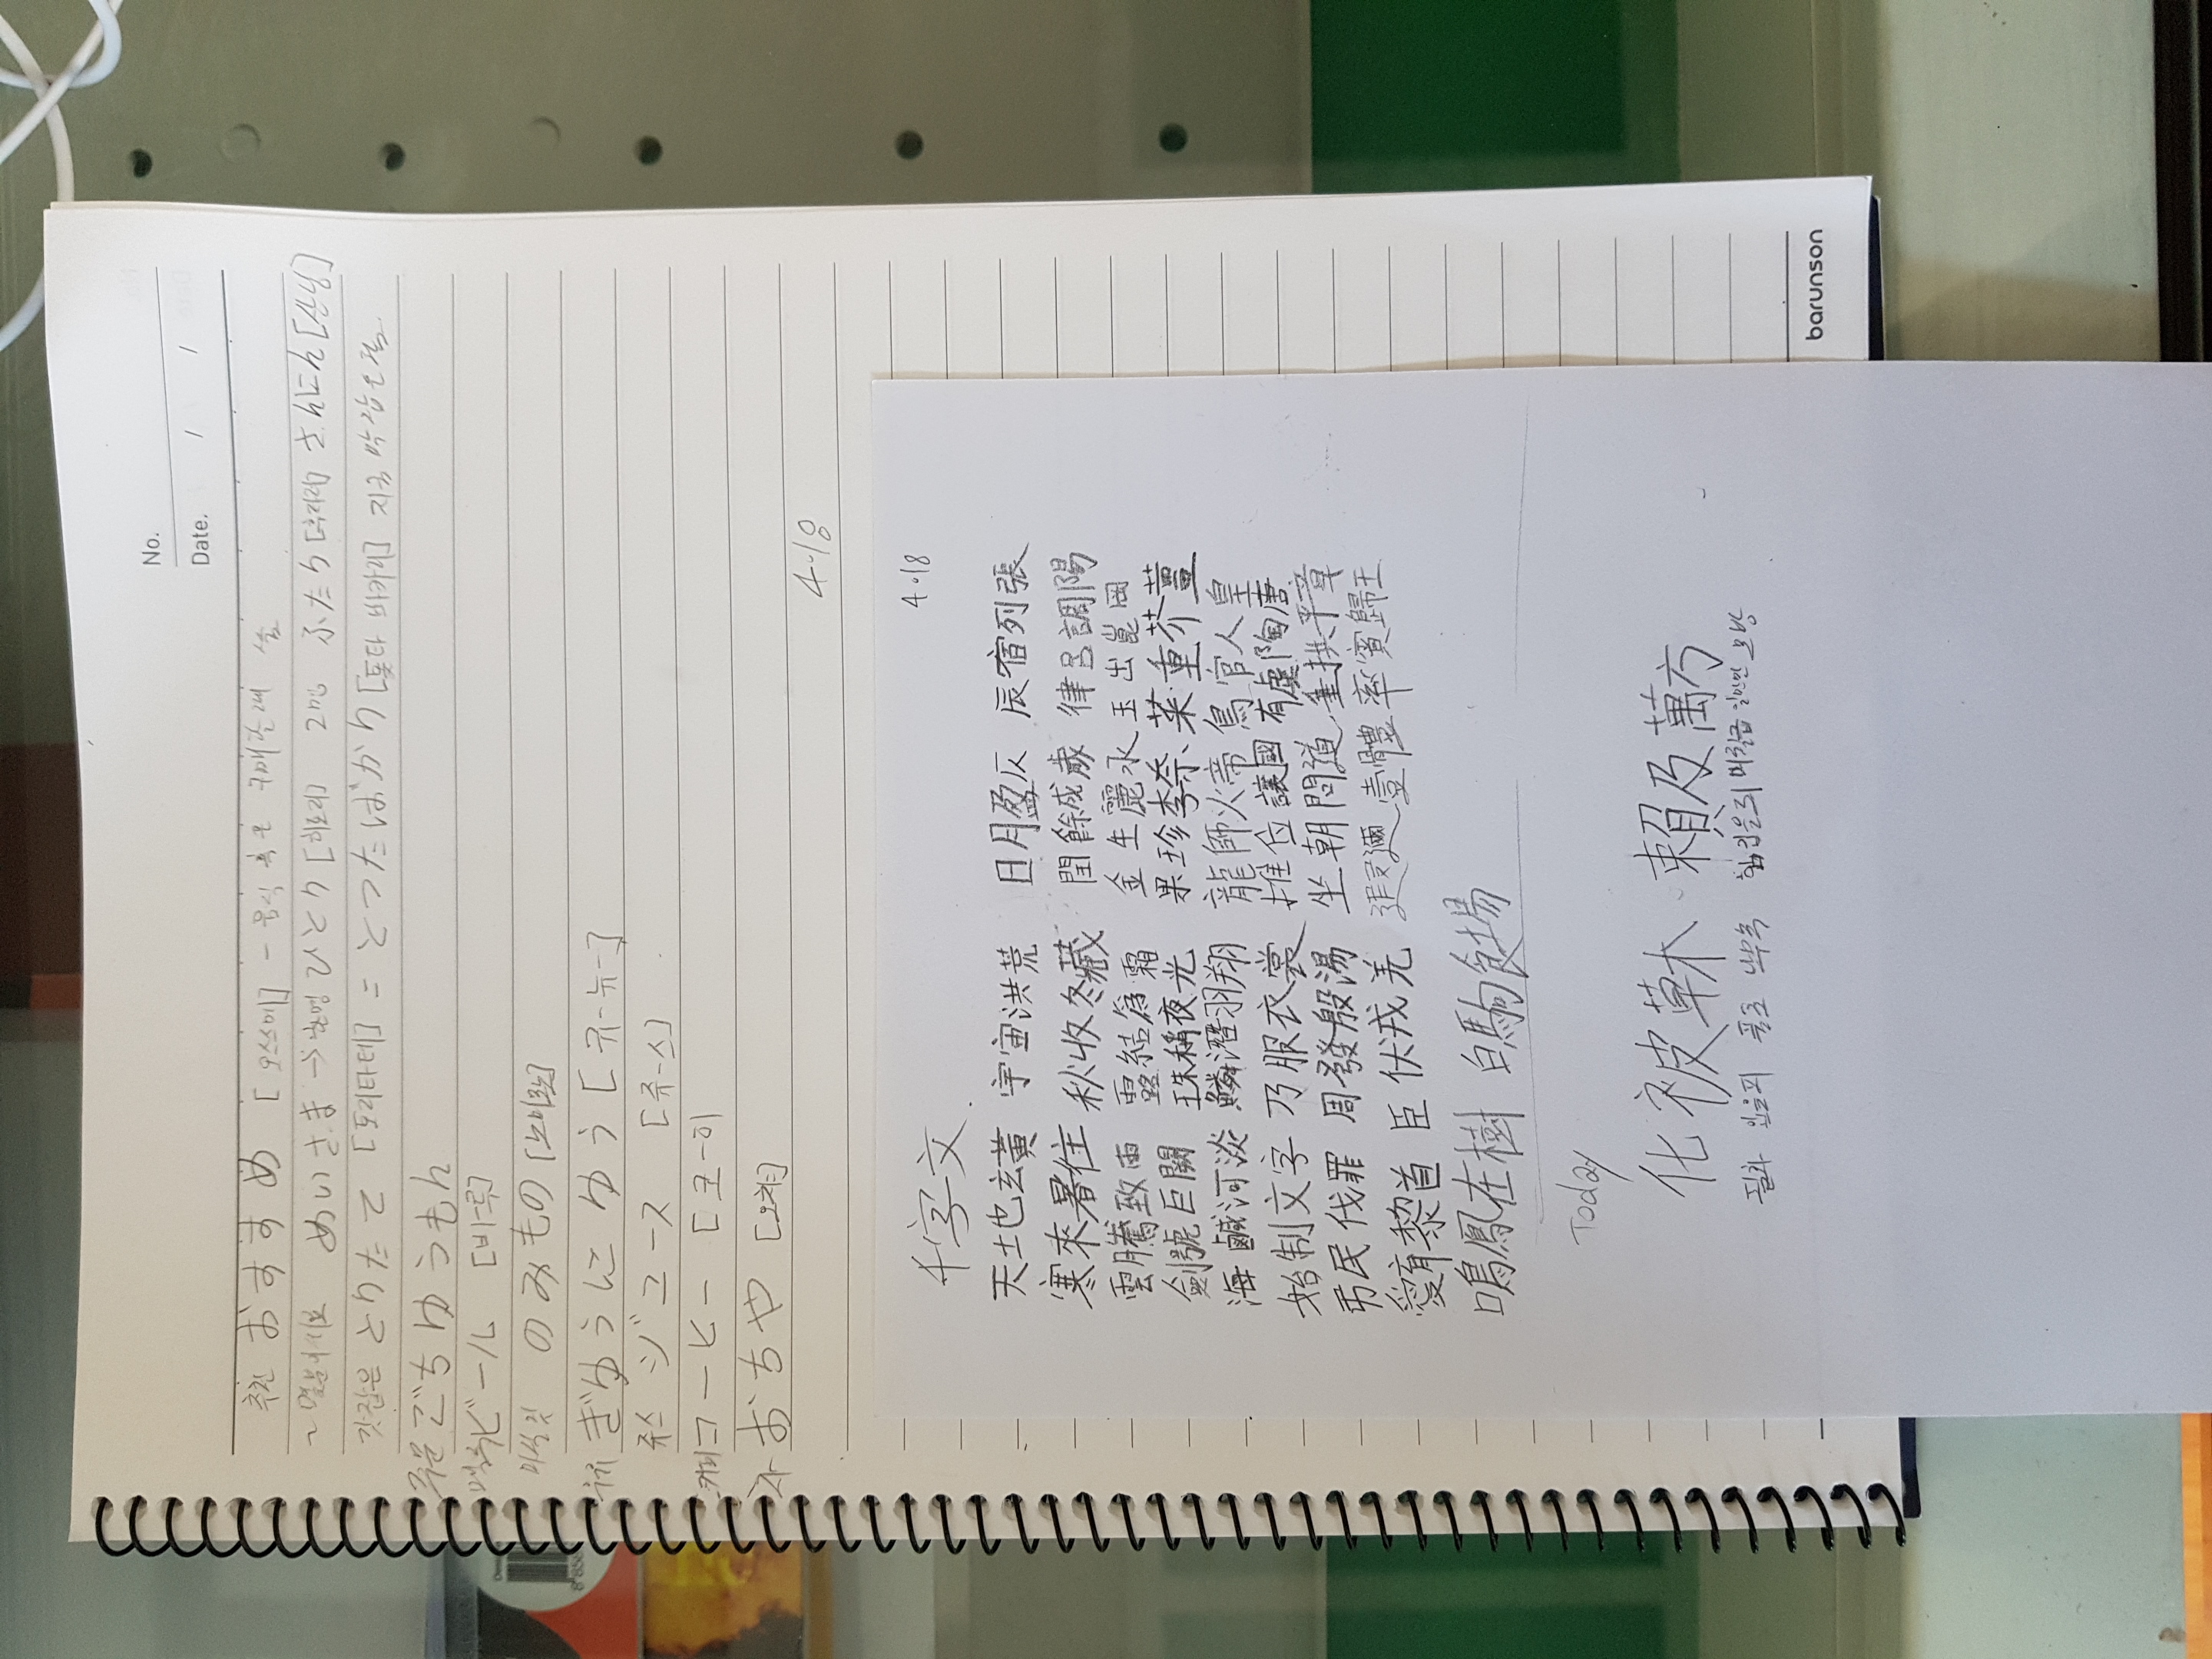 No.
Date. / /
추천 おすすめ [오스스메] - 음식 혹은 구매할때 씀
~몇분이세요 めいさま → 한명 ひとり [히토리] 2명 ふたり [후타리] さんにん [산닝]
갓잡은 とりたて [토리타테] = とったばかり [톳다 바카리] 지금 막 잡은
주문 ごちゆうもん
맥주 ビール [비-루]
마실것 のみもの [노미모노]
ぎゆうにゆう [규-뉴-]
쥬스 ジユース [쥬-스]
커피 コーヒー [코-히]
차 おちや [오챠]
4-18
barunson
4.18
千字文
天土也玄黃 宇宙洪荒 日月盈仄 辰宿列張
寒來暑往 秋收冬藏 閏餘成歲 律呂調陽
雲騰致雨 露結爲霜 金生麗水 玉出崑岡
劍號巨闕 珠稱夜光 果珍李奈 菜重芥薑
海鹹河淡 鱗潛羽翔 龍師火帝 鳥官人皇
始制文字 乃服衣裳 推位讓國 有虞陶唐
弔民伐罪 周發殷湯 坐朝問道 垂拱平章
愛育黎首 臣伏戎羌 遐邇壹體 率賓歸王
鳴鳳在樹 白駒食場
Today
化被草木 賴及萬方
될화 입을피 풀초 나무목 힘입을뢰 미칠급 일만만 모방